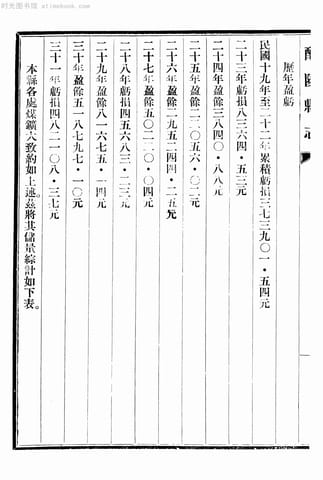 时光图书馆 · atimebook.com
歷年盈虧
民國十九年至二十二年累積虧損三七三九〇一・五四元
二十三年虧損八三六四・五三元
二十四年盈餘三八〇四・八八元
二十五年盈餘二二〇五六・〇二元
二十六年盈餘二九五二四四・二五元
二十七年盈餘五〇二二〇・〇四元
二十八年虧損四五六八三・二三元
二十九年盈餘八一六七五・一四元
三十年盈餘五一八七九七・一〇元
三十一年虧損四八二二〇八・三七元
本縣各處煤鑛大致約如上述。茲將其儲量綜計如下表。